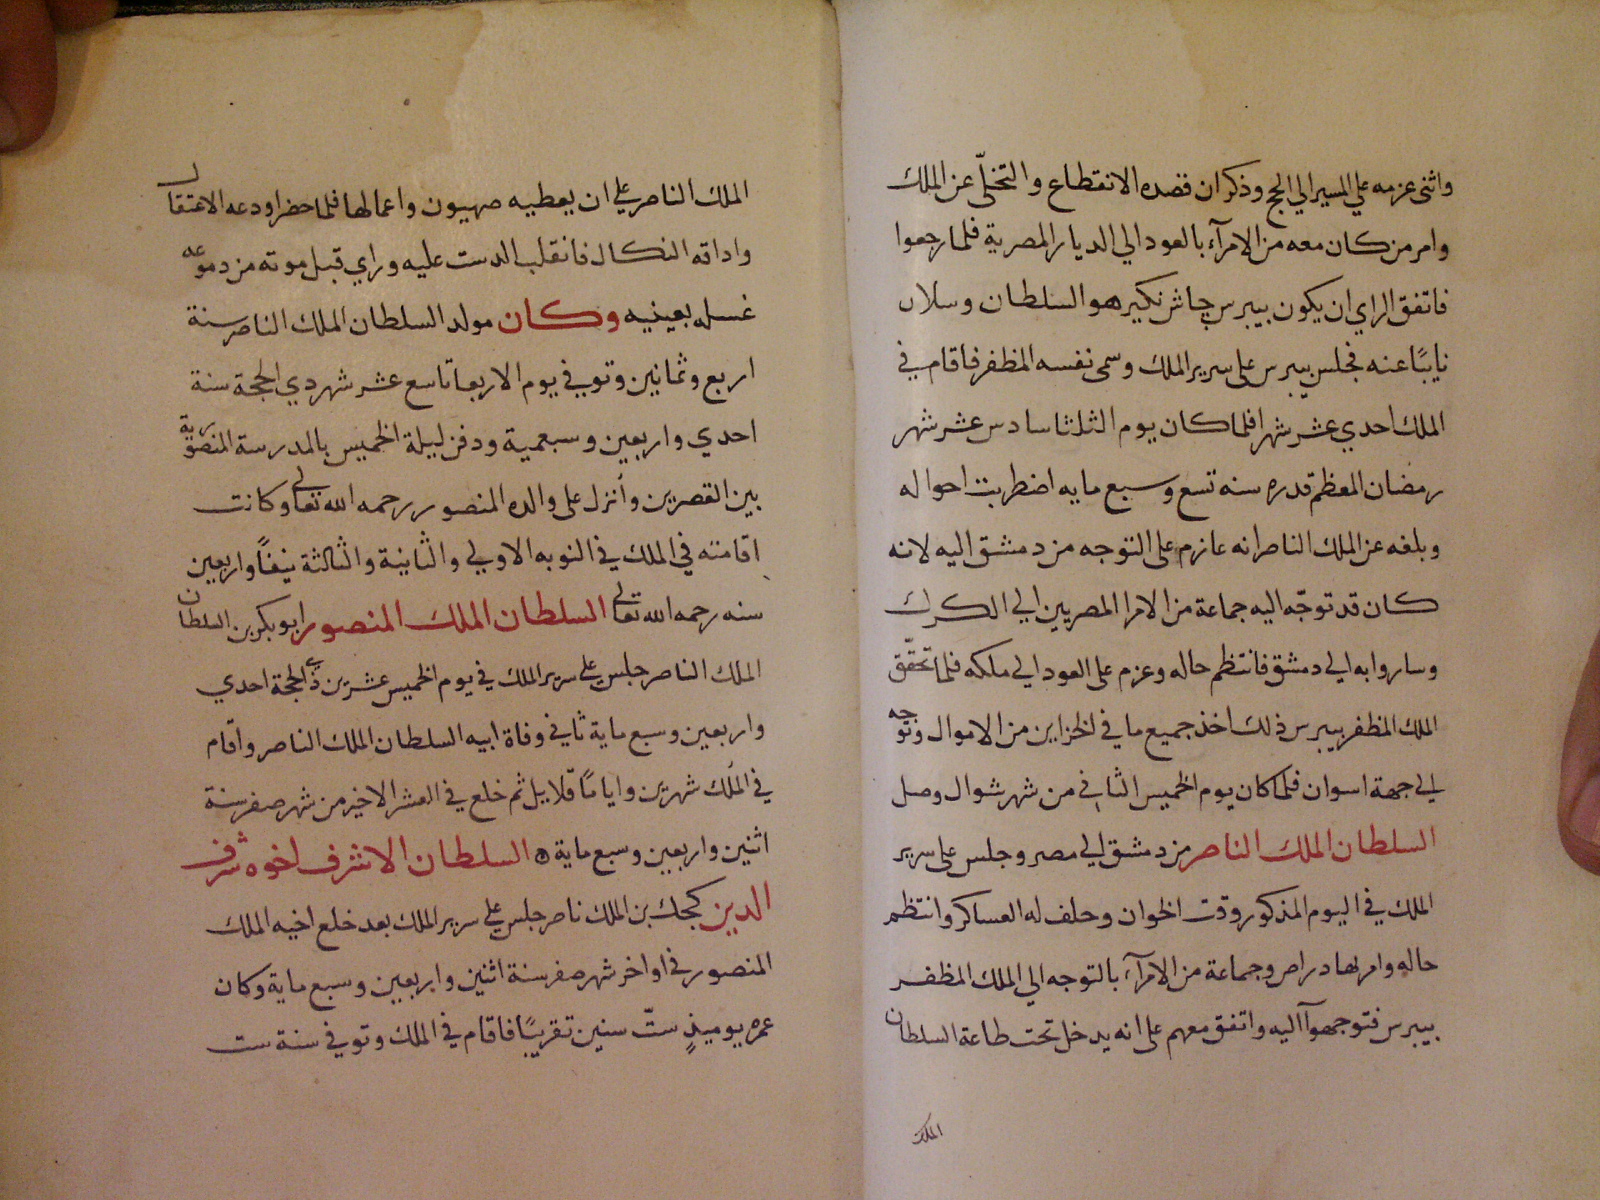 واثنى عزمه علي المسير الي الحج وذكر ان قصده الانقطاع والتخلّى عن الملك
وامر من كان معه من الامرآء بالعود الي الديار المصرية فلما رجعوا
فاتفق الراي ان يكون بيبرس جاشنكير هو السلطان وسلار
نايبًا عنه فجلس بيبرس على سرير الملك وسمى نفسه المظفر فاقام في
الملك احدي عشر شهرا فلما كان يوم الثلثا سادس عشر شهر
رمضان المعظم قدره سنه تسع وسبع مايه اضطربت احواله
وبلغه عن الملك الناصر انه عازم على التوجه من دمشق اليه لانه
كان قد توجّه اليه جماعة من الامرا المصريين الي الكرك
وساروا به الي دمشق فانتظم حاله وعزم على العود الي ملكه فلما تحقّق
الملك المظفر بيبرس ذلك اخذ جميع ما في الخزاين من الاموال وتوجه
الي جهة اسوان فلما كان يوم الخميس الثاني من شهر شوال وصل
السلطان الملك الناصر من دمشق الي مصر وجلس على سرير
الملك في اليوم المذكور وقت الخوان وحلف له العساكر وانتظم
حاله وامر بهادراص وجماعة من الامرآء بالتوجه الي الملك المظفر
بيبرس فتوجهوا اليه واتفق معهم على انه يدخل تحت طاعة السلطان
الملك
الملك الناصر على ان يعطيه صهيون واعمالها فلما حضر اودعه الاعتقال
واداقه النكال فانقلب الدست عليه وراي قبل موته من دموعه
غسله بعينيه وكان مولد السلطان الملك الناصر سنة
اربع وثمانين وتوفي يوم الاربعا تاسع عشر شهر دي الحجة سنة
احدي واربعين وسبعمية ودفن ليلة الخميس بالمدرسة المنصورية
بين القصرين وأنزل على والده المنصور رحمه الله تعالى وكانت
اقامته في الملك في النوبه الاولي والثانية والثالثة نيفًا واربعين
سنه رحمه الله تعالى السلطان الملك المنصور ابو بكر بن السلطان
الملك الناصر جلس على سرير الملك في يوم الخميس عشرين ذي الحجة احدي
واربعين وسبع ماية ثاني وفاة ابيه السلطان الملك الناصر واقام
في الملك شهرين واياما قلايل ثم خلع في العشر الاخير من شهر صفر سنة
اثنين واربعين وسبع ماية ه السلطان الاشرف اخوه شرف
الدين كجك بن الملك ناصر جلس على سرير الملك بعد خلع اخيه الملك
المنصور في اواخر شهر صفر سنة اثنين واربعين وسبع ماية وكان
عمره يوميذٍ ستّ سنين تقريبًا فاقام في الملك وتوفي سنة ست